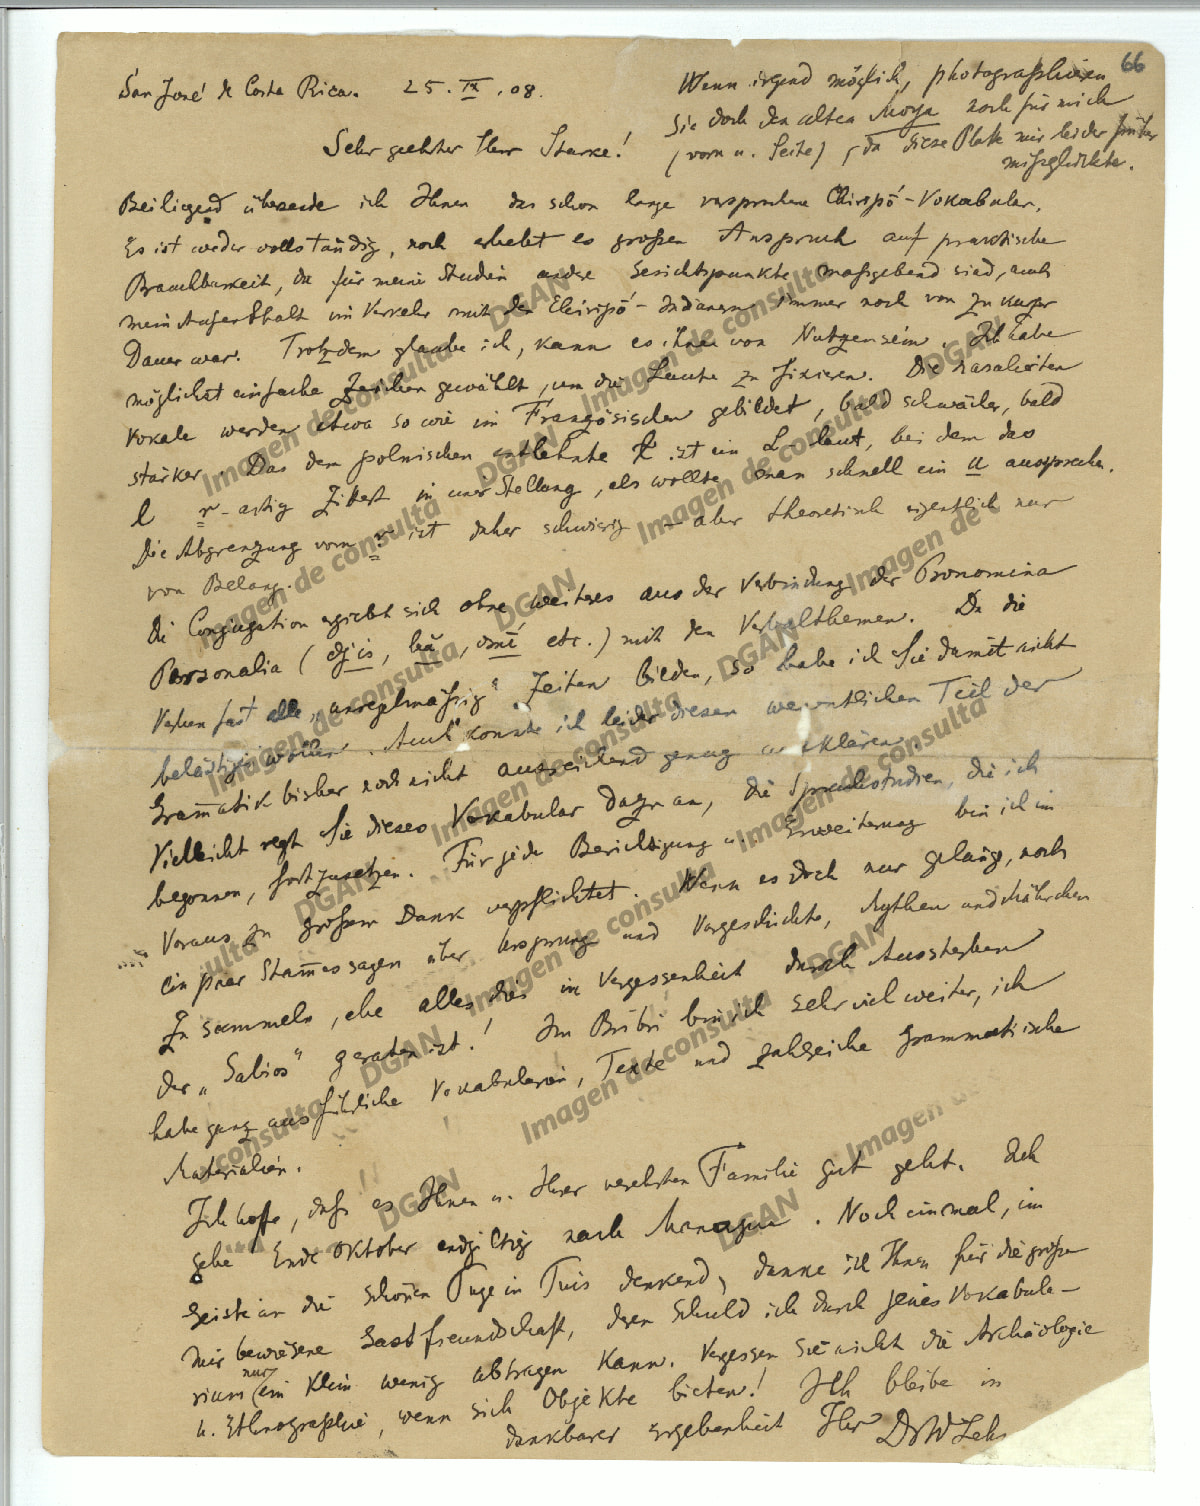 66
San José de Costa Rica. 25. IX. 08.
Wenn irgend möglich, photographieren
Sie doch den alten Moya noch für mich
(vorn u. Seite), da diese Platte mir leider früher
missglückte.
Sehr geehrter Herr Starke!
Beiliegend übersende ich Ihnen das schon lange versprochene Chirripó-Vokabular.
Es ist weder vollständig, noch erhebt es großen Anspruch auf praktische
Brauchbarkeit, da für meine Studien andre Gesichtspunkte maßgebend sind, auch
mein Aufenthalt im Verkehr mit den Chirripó-Indianern immer noch von zu kurzer
Dauer war. Trotzdem glaube ich, kann es ihnen von Nutzen sein. Ich habe
möglichst einfache Zeichen gewählt, um die Laute zu fixieren. Die nasalierten
Vokale werden etwa so wie im Französischen gebildet, bald schwächer, bald
stärker. Das dem polnischen entlehnte ł ist ein L-laut, bei dem das
l r-artig zittert in einer Stellung, als wollte man schnell ein u aussprechen.
Die Abgrenzung vom r ist daher schwierig – aber theoretisch eigentlich nur
von Belang.
Die Conjugation ergiebt sich ohne weiteres aus der Verbindung der Pronomina
Personalia ( etc.) mit den Verbalthemen. Da die
Verben fast alle „unregelmässig“ Zeiten bilden, so habe ich Sie damit nicht
belästigen wollen. Auch konnte ich leider diesen wesentlichen Teil der
Grammatik bisher noch nicht ausreichend genug erklären.
Vielleicht regt Sie dieses Vokabular dazu an, die Sprachstudien, die ich
begonnen, fortzusetzen. Für jede Berichtigung u. Erweiterung bin ich im
Voraus zu großem Dank verpflichtet. Wenn es doch nur gelänge, noch
ein paar Stammessagen über Ursprung und Vorgeschichte, Mythen und Mährchen
zu sammeln, ehe alles dies in Vergessenheit durch Aussterben
der „Sabios“ geraten ist! Im Bribri bin ich sehr viel weiter, ich
habe ganz ausführliche Vokabularien, Texte und zahlreiche grammatische
Materialien.
Ich hoffe, daß es Ihnen u. Ihrer verehrten Familie gut geht. Ich
gehe Ende Oktober endgültig nach Managua. Noch einmal, im
Geiste an die schönen Tage in Tuis denkend, danke ich Ihnen für die große
mir bewiesene Gastfreundschaft, deren Schuld ich durch jenes Vokabula-
rium nur ein klein wenig abtragen kann. Vergessen Sie nicht die Archäologie
u. Ethnographie, wenn sich Objekte bieten! Ich bleibe in
dankbarer Ergebenheit Ihr Dr W Leh
Imagen de consulta
DGAN